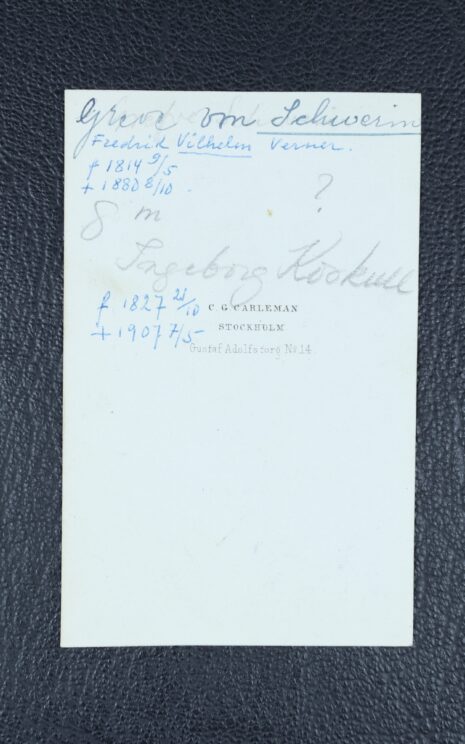 Greve von Schwerin
Fredrik Vilhelm Verner.
f 1814 9/5
+ 1880 8/10.
?
g m
Ingeborg Koskull
f 1827 21/10
+ 1907 7/5
C. G. CARLEMAN
STOCKHOLM
Gustaf Adolfs torg No 14.